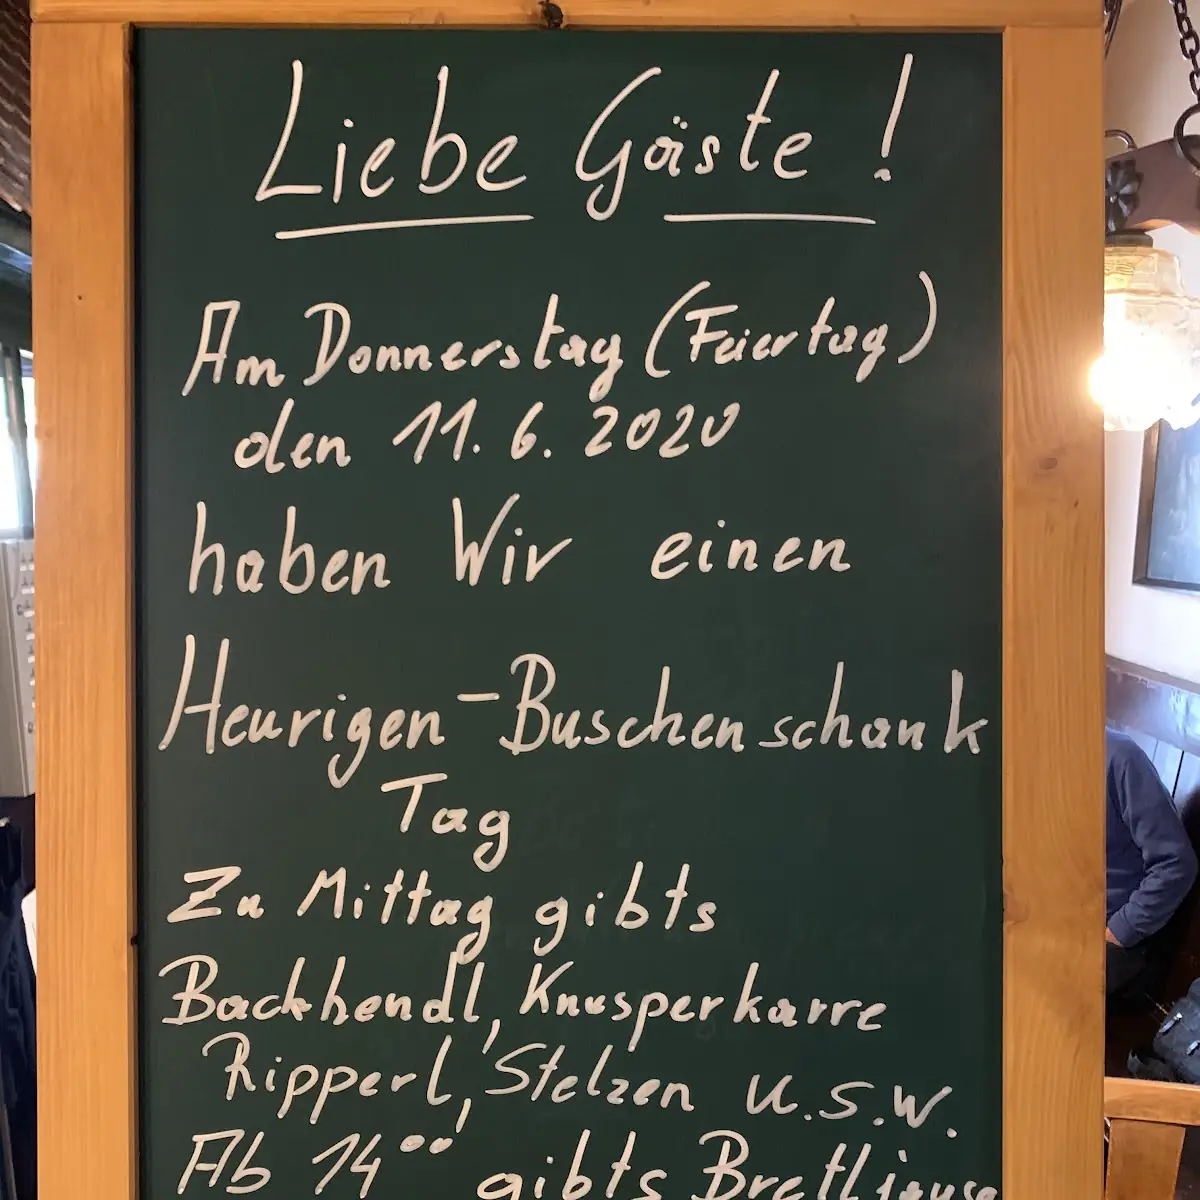 Liebe Gäste!
Am Donnerstag (Feiertag)
den 11. 6. 2020
haben Wir einen
Heurigen-Buschenschank
Tag
Zu Mittag gibts
Backhendl, Knusperkarre
Ripperl, Stelzen u.s.w.
Ab 14°° gibts Bretljause